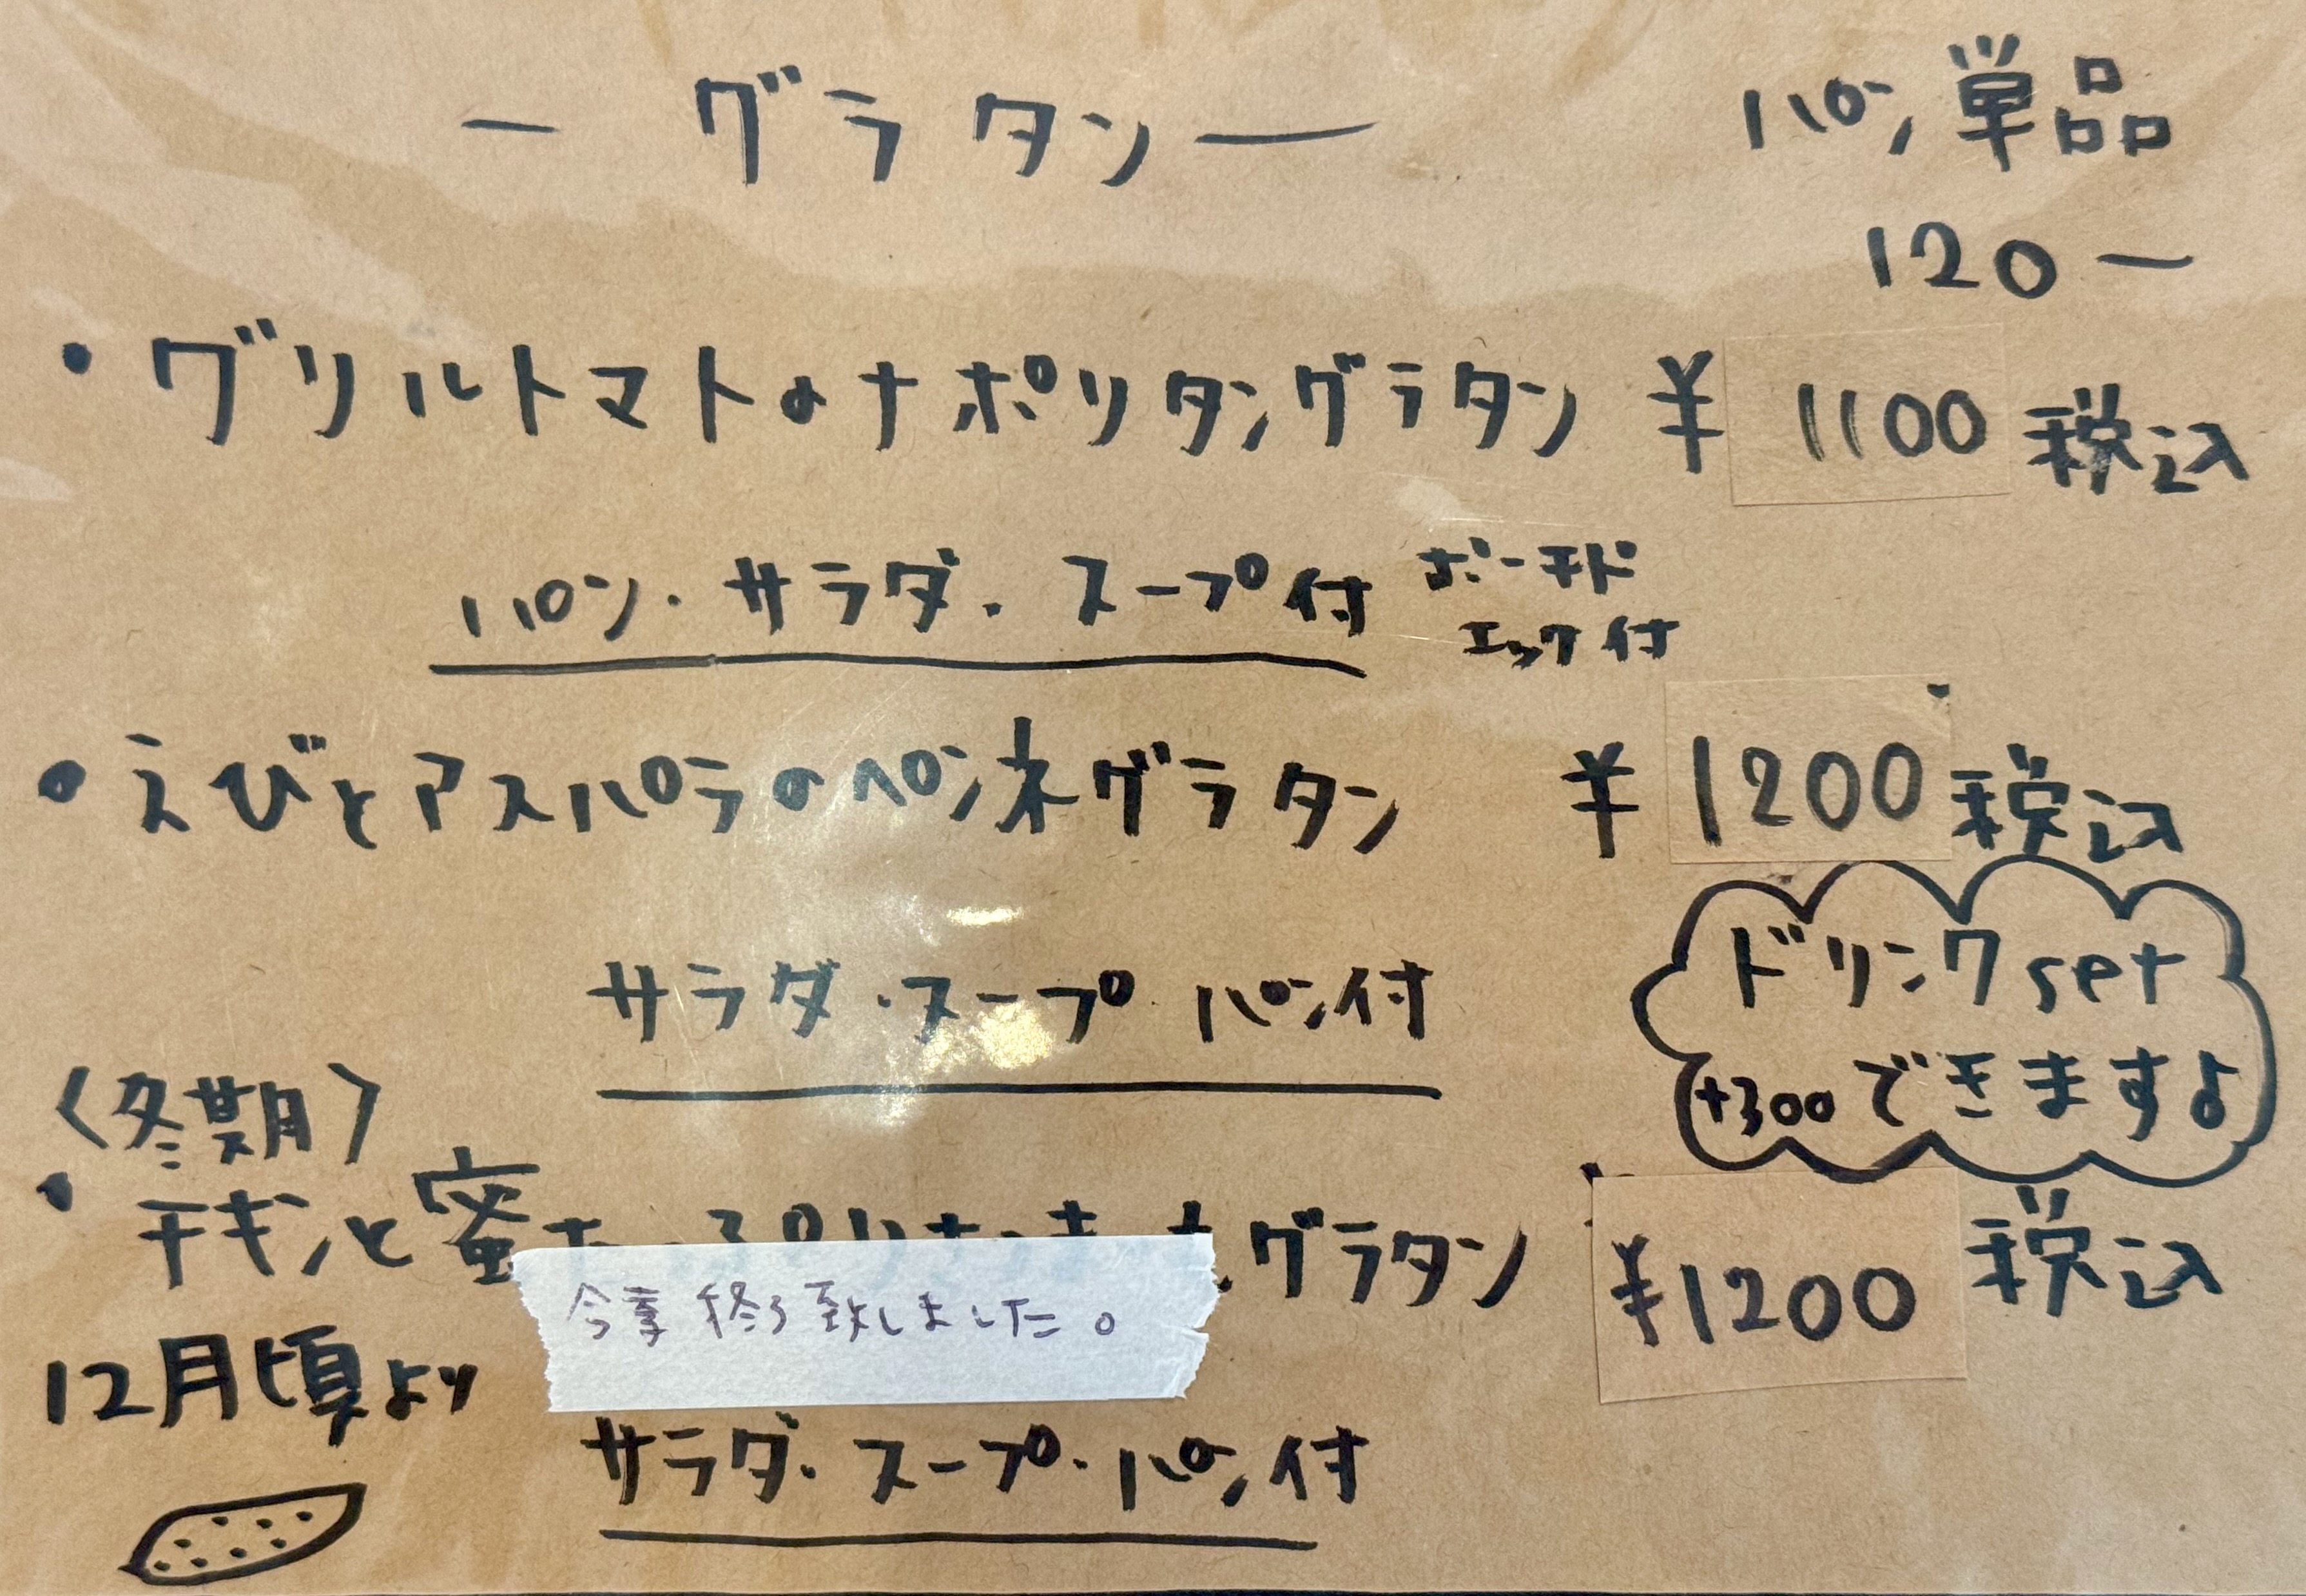 ー グラタン ー
パン単品
120ー
・グリルトマトのナポリタングラタン ¥1100 税込
パン・サラダ・スープ付
ボーチド
エッグ付
・えびとアスパラのペンネグラタン ¥1200 税込
サラダ・スープ パン付
ドリンクset
+300できますよ
〈冬期〉
・チキンと蜜 グラタン ¥1200 税込
今季終了致しました。
12月頃より
サラダ・スープ・パン付